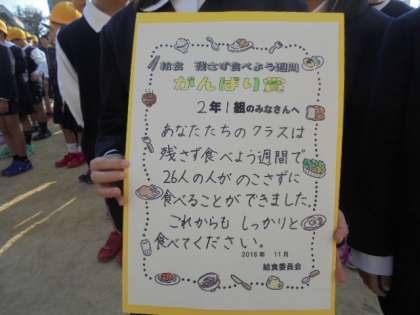 給食 残さず食べよう週間
がんばり賞
2年1組のみなさんへ
あなたたちのクラスは
残さず食べよう週間で
26人の人が のこさずに
食べることができました。
これからも しっかりと
食べてください。
2018年 11月
給食委員会